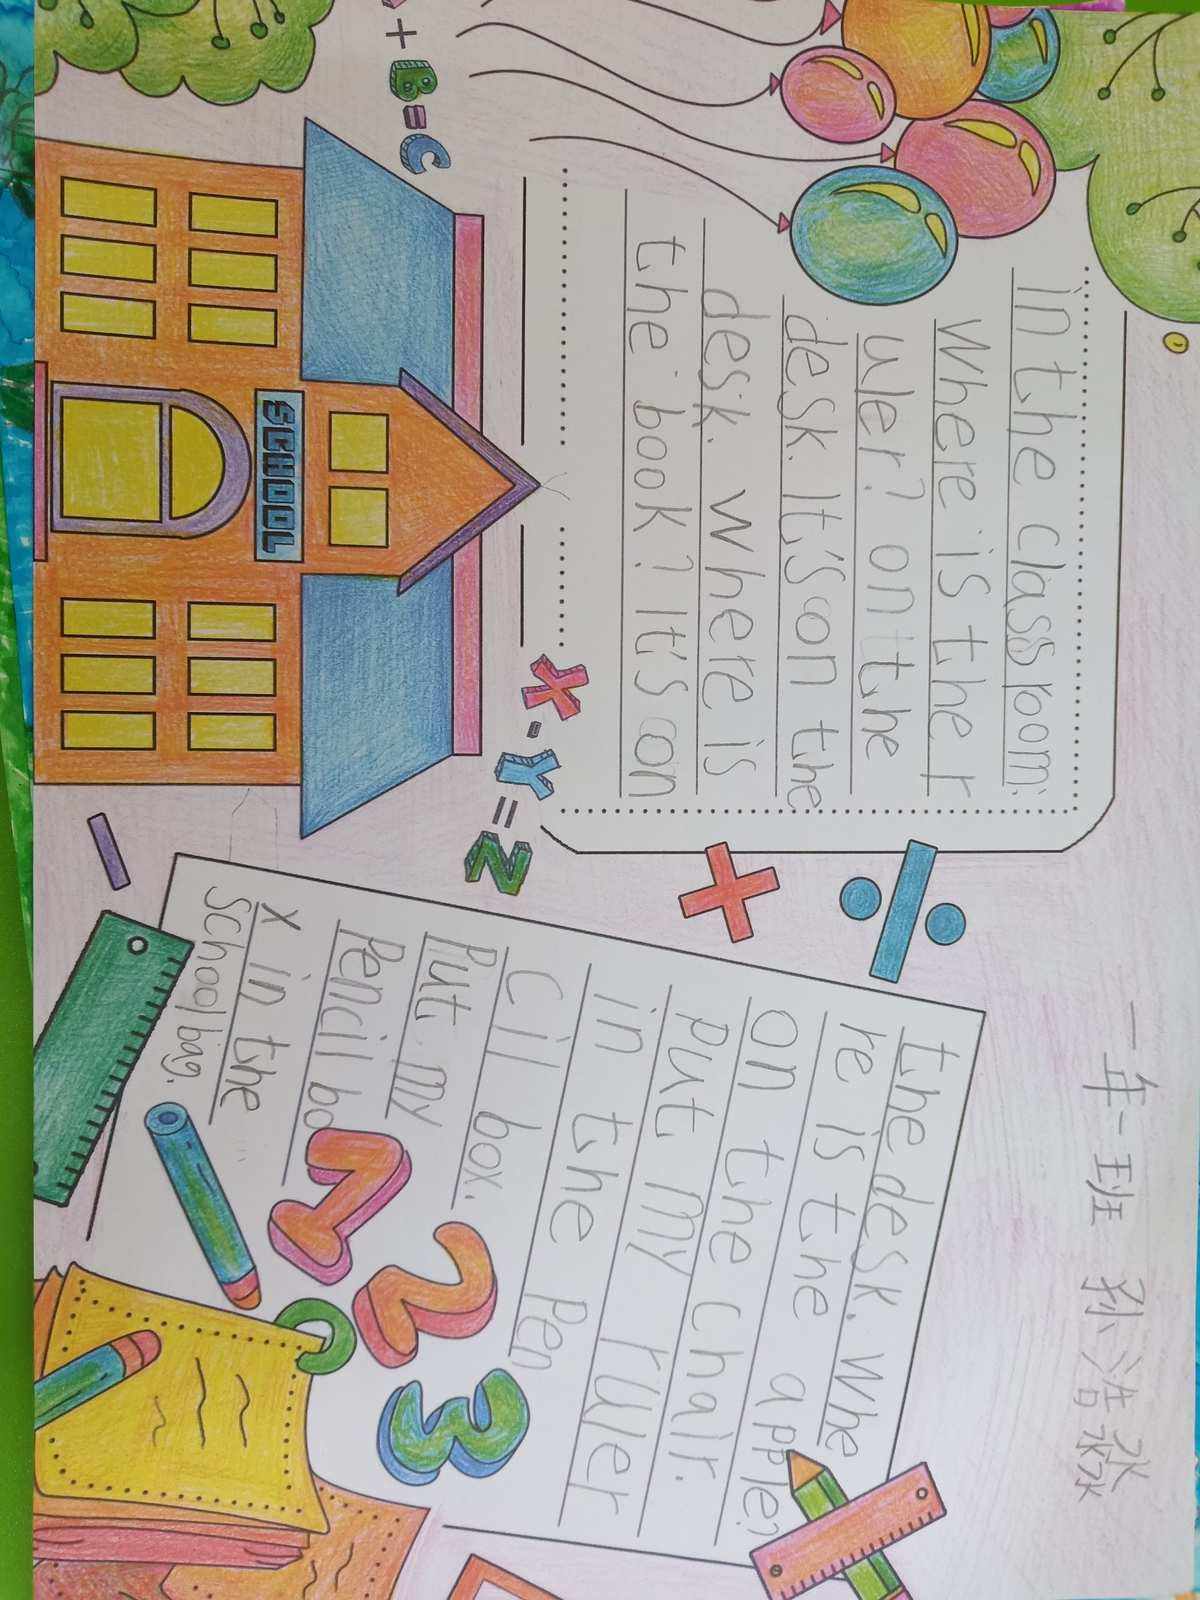 一年一班 孙浩淼
in the classroom:
Where is the r
uler? on the
desk. It's on the
desk. Where is
the book? It's on
+ B = C
X - Y = Z
SCHOOL
the desk. Whe
re is the apple?
on the chair.
put my ruler
in the pen
cil box.
Put my
Pencil bo
x in the
schoolbag.
1 2 3